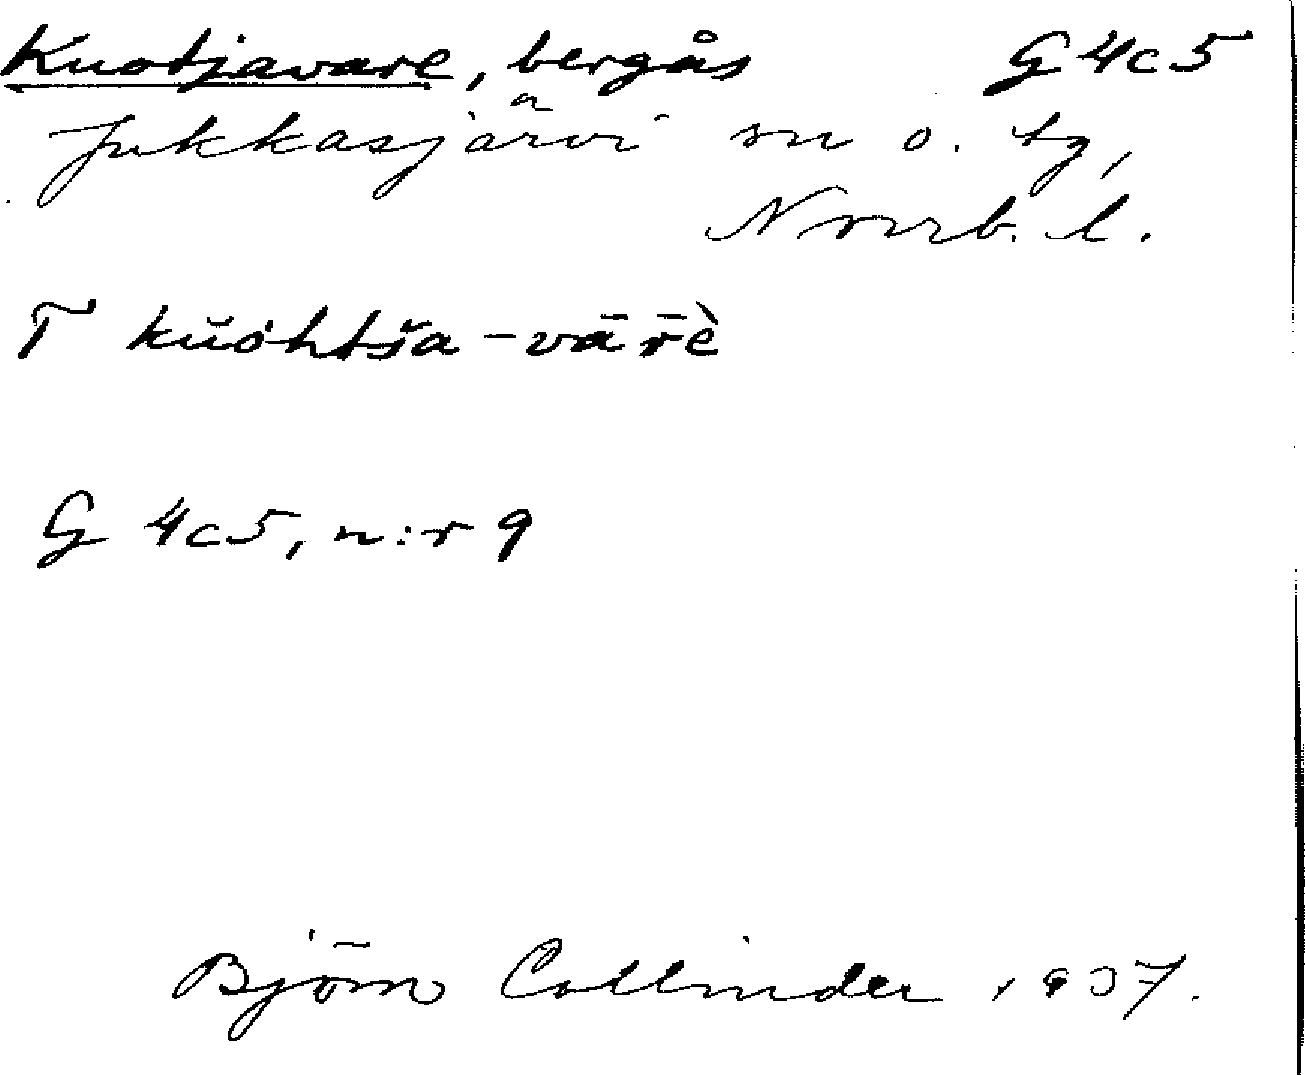 Kuotjavare, bergås G 4c5
Jukkasjärvi sn o. tg,
Norrb. l.
T kŭohtša-vārè
G 4c5, n:r 9
Björn Collinder 1937.